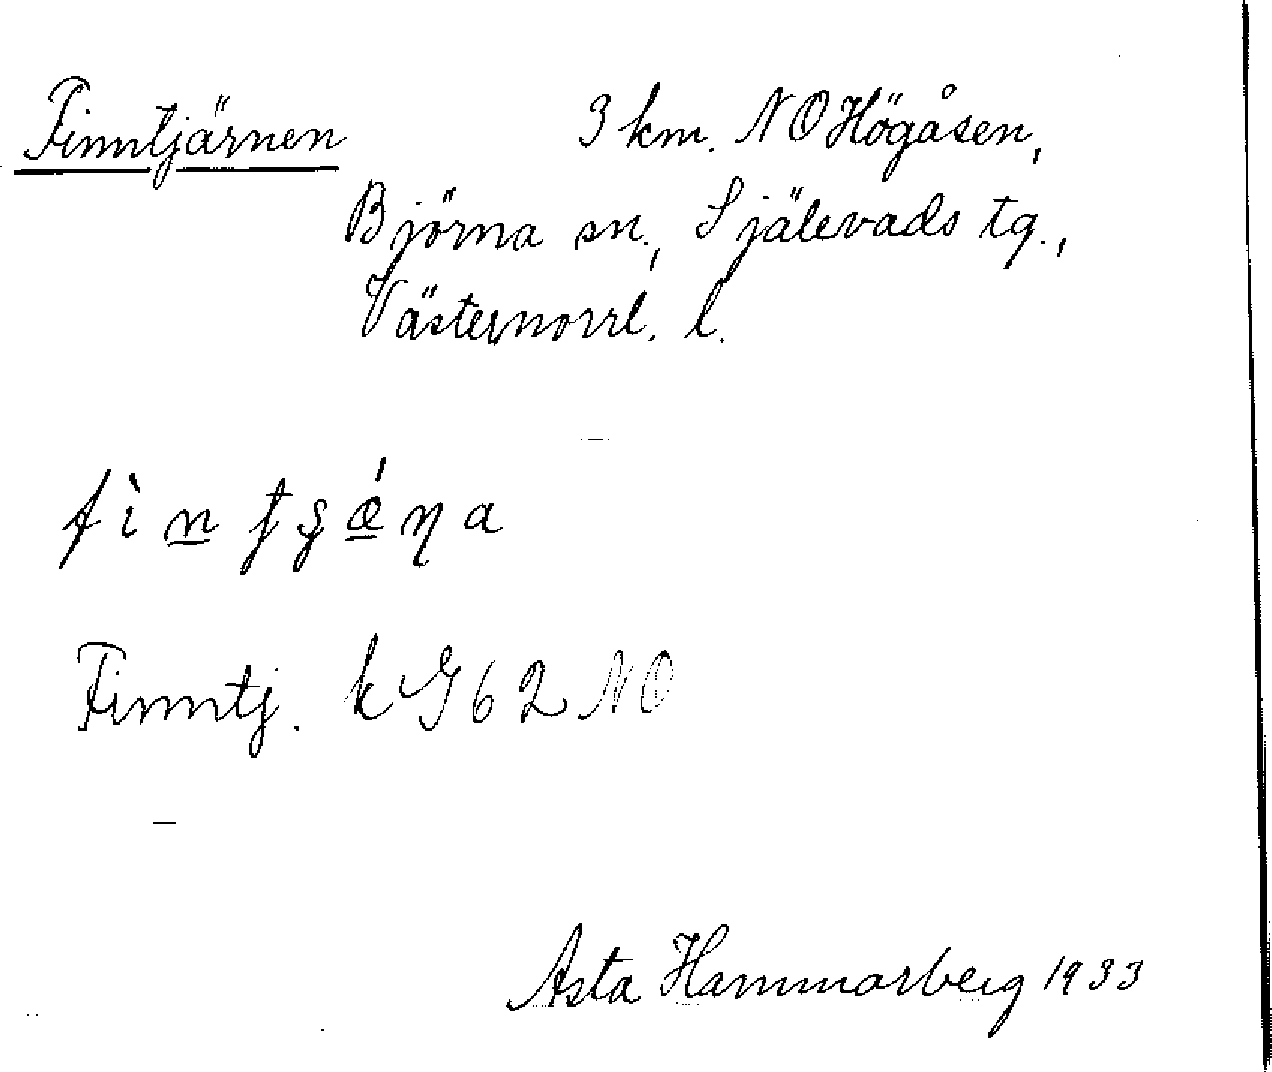 Finntjärnen 3 km. NO Högåsen,
Björna sn., Själevads tg.,
Västernorrl. l.
Finntj. k G62 NO
Asta Hammarberg 1933